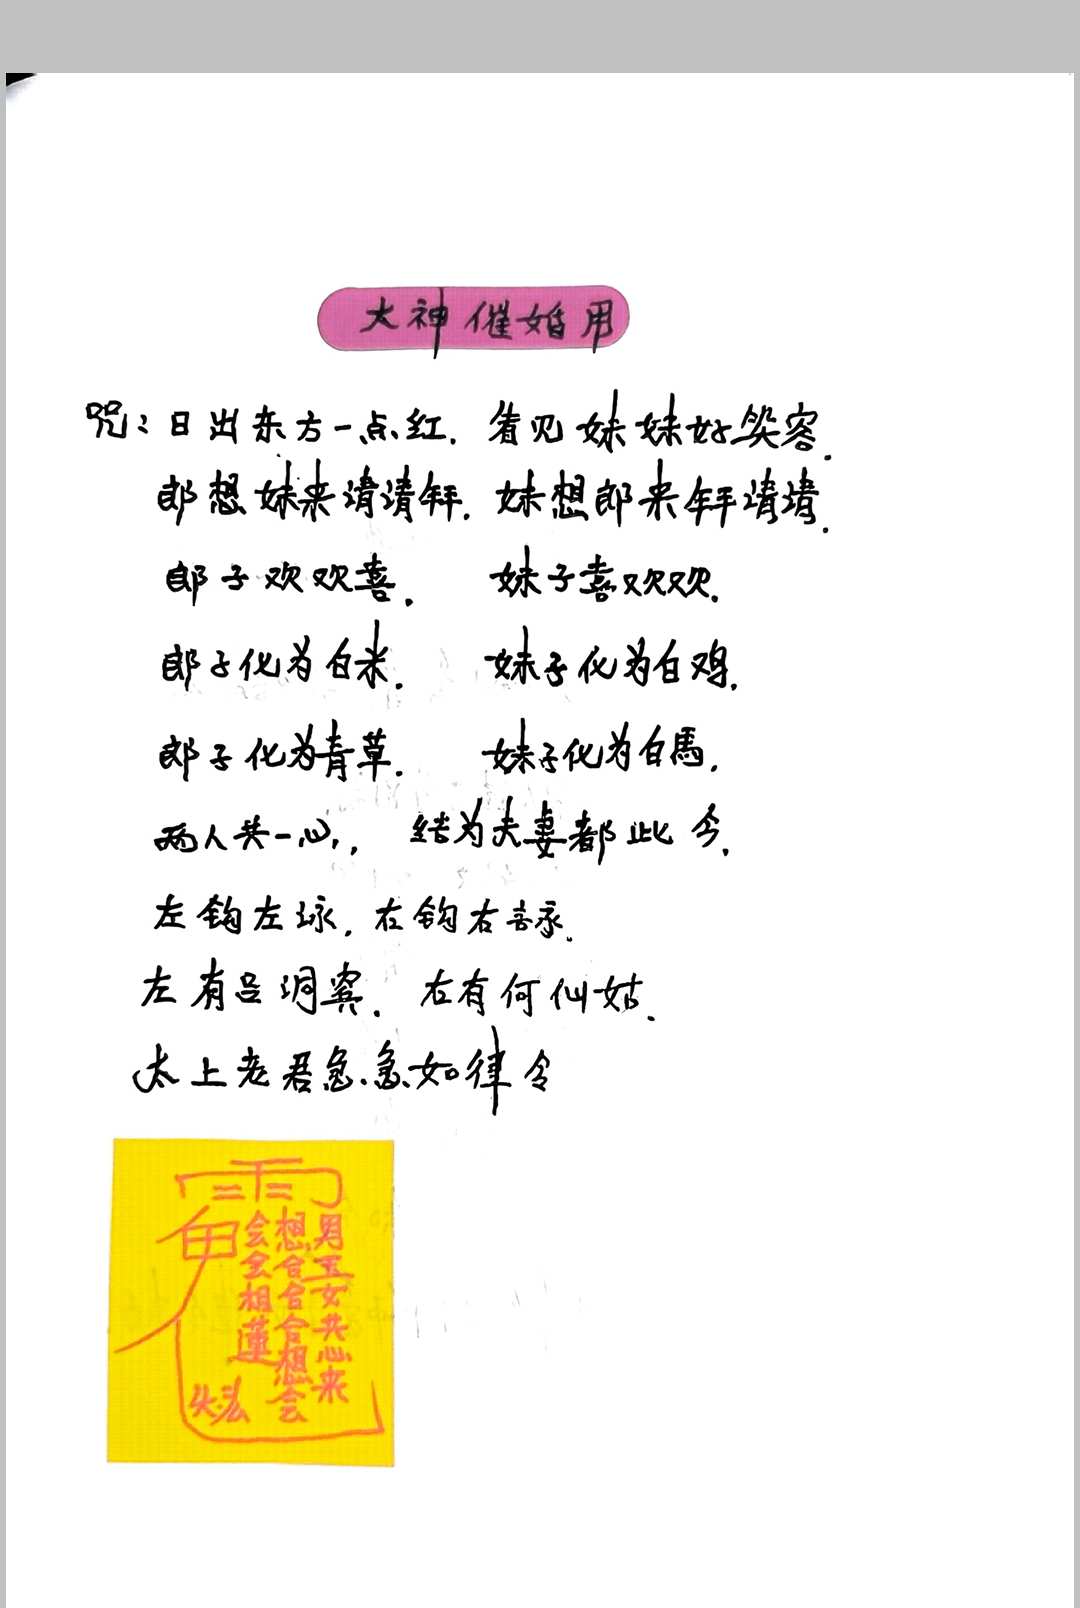 大神催婚用
咒：日出东方一点红. 看见妹妹好笑容.
郎想妹来请请拜. 妹想郎来拜请请.
郎子欢欢喜. 妹子喜欢欢.
郎子化为白米. 妹子化为白鸡.
郎子化为青草. 妹子化为白馬.
两人共一心, 结为夫妻都此令.
左钩左咏, 右钩右咏.
左有吕洞宾. 右有何仙姑.
太上老君急急如律令
男玉女共心来
想合合合想会
会会相蓮